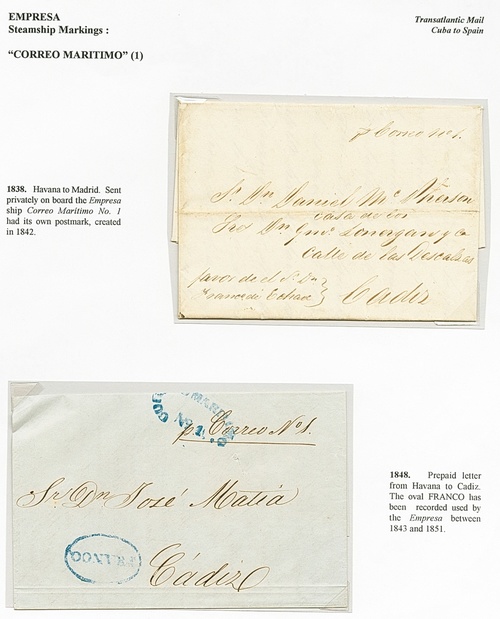 EMPRESA
Steamship Markings :
"CORREO MARITIMO" (1)
Transatlantic Mail
Cuba to Spain
1838. Havana to Madrid. Sent
privately on board the Empresa
ship Correo Maritimo No. 1
had its own postmark, created
in 1842.
p Correo No 1.
Sr. Dn Daniel Mc Pherson
casa de los
Sres Dn
Calle de las Descalzas
favor de el Sr Dn
Cadiz
CORREO MARITIMO
Nº 1.
p. Correo Nº 1.
Sr. Dn José Matiá
FRANCO
Cádiz
1848. Prepaid letter
from Havana to Cadiz.
The oval FRANCO has
been recorded used by
the Empresa between
1843 and 1851.